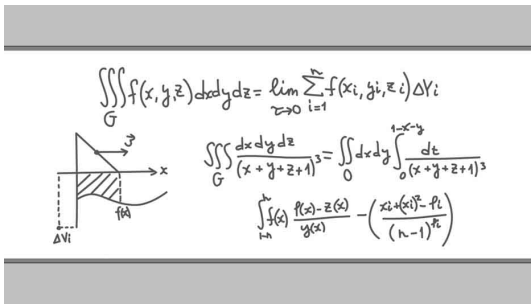 ∭_G f(x,y,z) dxdydz = lim_{τ→0} ∑_{i=1}^{n} f(xi, yi, zi) ΔVi
x
f(x)
ΔVi
∭_G dxdydz/(x+y+z+1)^3 = ∬_D dxdy ∫_0^{1-x-y} dt/(x+y+z+1)^3
f(x) (f(x)-z(x))/y(x) - (
(n-1)